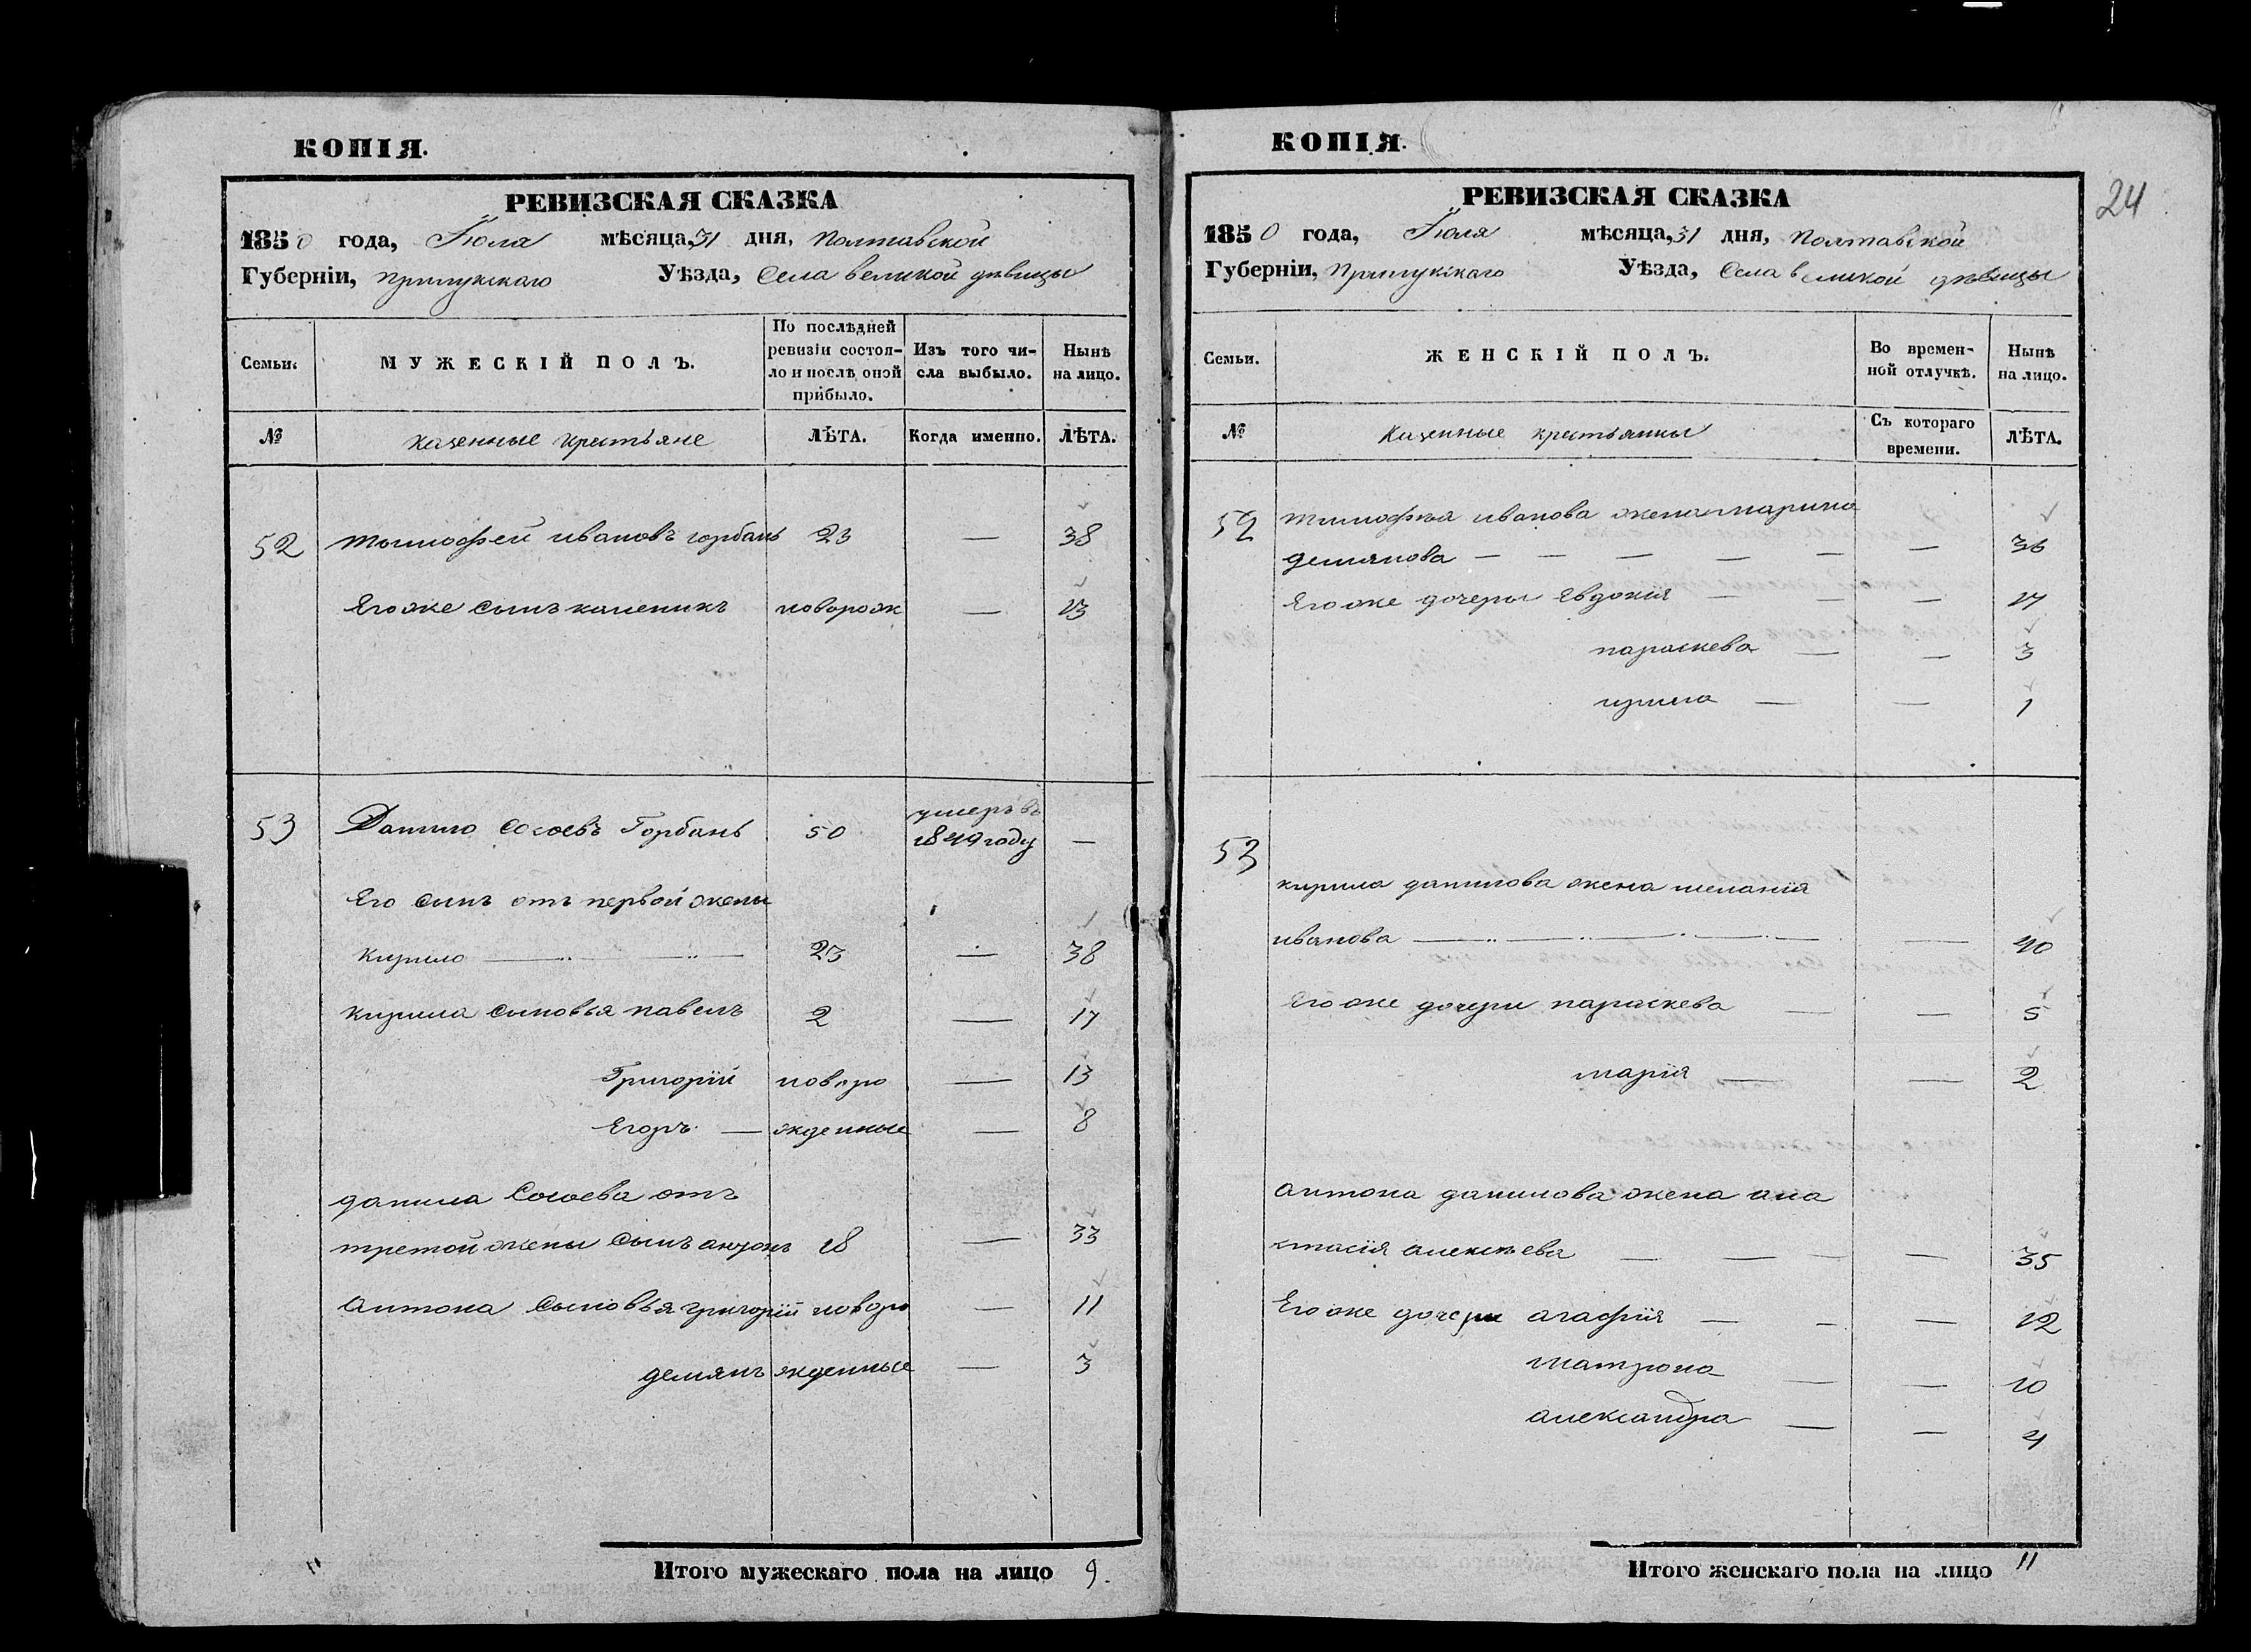 КОПІЯ.
РЕВИЗСКАЯ СКАЗКА
1850 года, Іюля мѣсяца, 31 дня, Полтавской
Губерніи, Прилукскаго Уѣзда, Села великой дѣвицы
Семьи.
МУЖЕСКІЙ ПОЛЪ.
По послѣдней ревизіи состоя-ло и послѣ оной прибыло.
Изъ того чи-сла выбыло.
Нынѣ на лицо.
№ казенные крестьяне ЛѢТА. Когда именно. ЛѢТА.
52 тымофей ивановъ горбань 23 — 38
Его же сынъ каленикъ новорож — 13
53 Данило Сосоевъ Горбань 50 умеръ въ 1849 году —
Его сынъ отъ первой жены
кирило 23 — 38
кирила сыновья павелъ 2 — 17
Григорій новоро — 13
Егоръ — жденные — 8
данила Сосоева отъ
третой жены сынъ антонъ 18 — 33
Антона сыновья григорій новоро — 11
демянъ жденные — 3
Итого мужескаго пола на лицо 9.
24
КОПІЯ.
РЕВИЗСКАЯ СКАЗКА
1850 года, Іюля мѣсяца, 31 дня, Полтавской
Губерніи, Прилукскаго Уѣзда, Села великой дѣвицы
Семьи.
ЖЕНСКІЙ ПОЛЪ.
Во времен-ной отлучкѣ.
Нынѣ на лицо.
№ Казенные крестьянки Съ котораго времени. ЛѢТА.
52 тимофея иванова жена марина
демянова — — — — — — 36
Его же дочеры Евдокія — — — 17
параскева — — 3
ирина — — 1
53
кирила данилова жена меланія
иванова — — 40
Его же дочери параскева — — 5
марія — — 2
антона данилова жена ана
стасія алексѣева — — — — 35
Его же дочери агафія — — — 12
матрона — — 10
александра — — 4
Итого женскаго пола на лицо 11